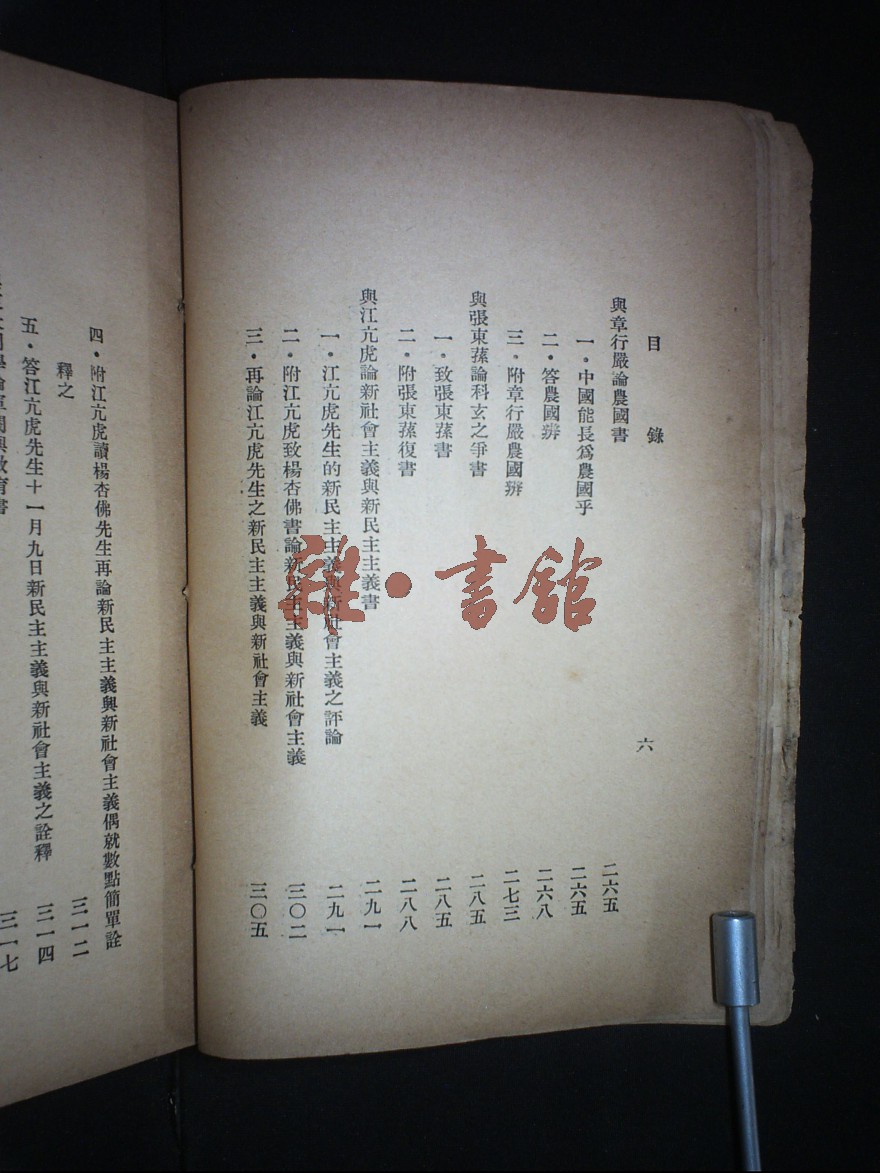 目錄
六
與章行嚴論農國書 二六五
一・中國能長爲農國乎 二六五
二・答農國辨 二六八
三・附章行嚴農國辨 二七三
與張東蓀論科玄之爭書 二八五
一・致張東蓀書 二八五
二・附張東蓀復書 二八八
與江亢虎論新社會主義與新民主主義書 二九一
一・江亢虎先生的新民主主義與新社會主義之評論 二九一
二・附江亢虎致楊杏佛書論新民主主義與新社會主義 三〇二
三・再論江亢虎先生之新民主主義與新社會主義 三〇五
四・附江亢虎讀楊杏佛先生再論新民主主義與新社會主義偶就數點簡單詮
釋之 三一二
五・答江亢虎先生十一月九日新民主主義與新社會主義之詮釋 三一四
與教育書 三一七
雜・書館